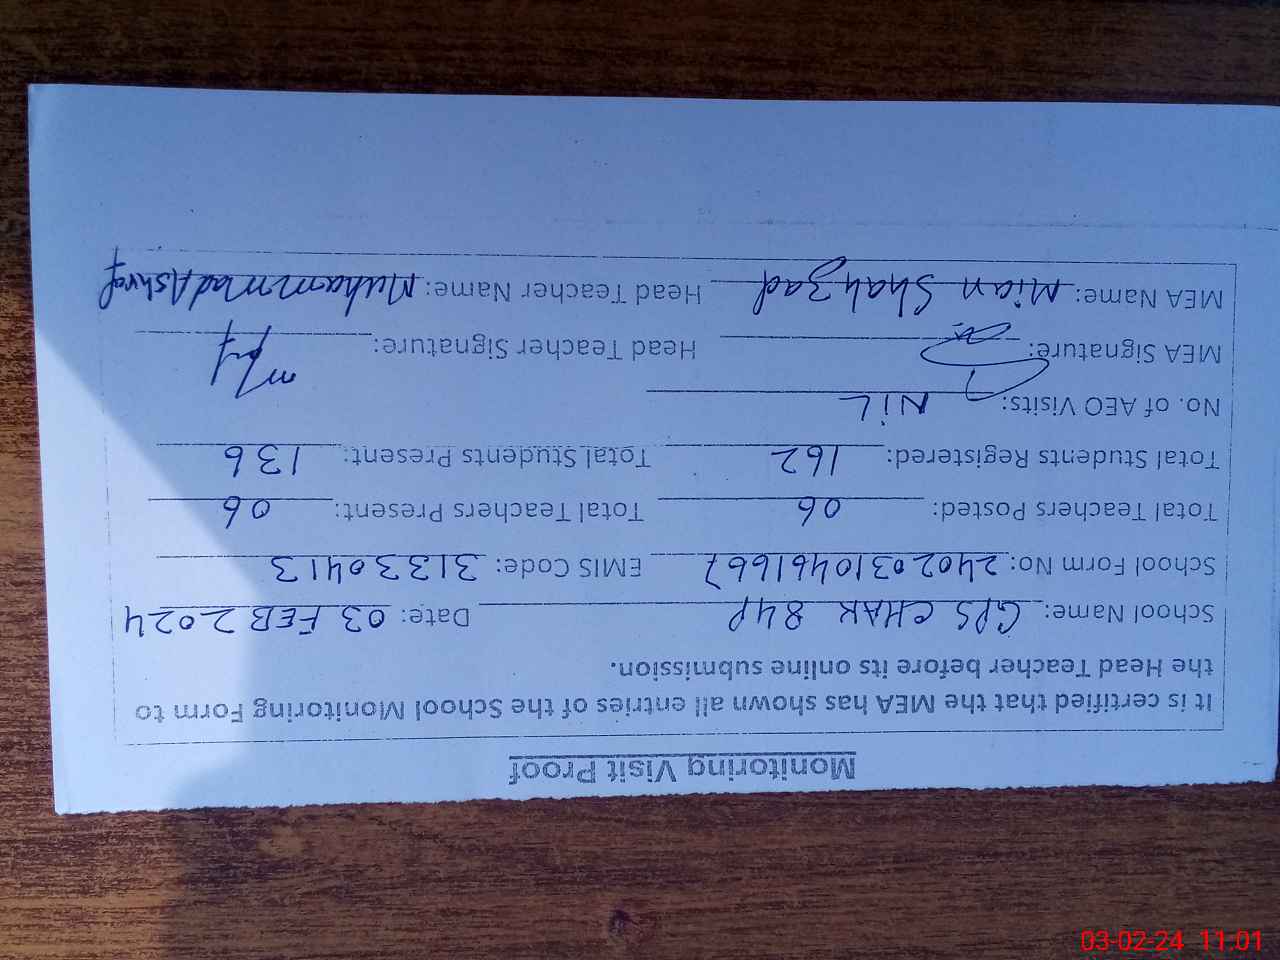 Monitoring Visit Proof
It is certified that the MEA has shown all entries of the School Monitoring Form to
the Head Teacher before its online submission.
School Name: GPS CHAK 84P Date: 03 FEB 2024
School Form No: 24020310461667 EMIS Code: 31330413
Total Teachers Posted: 06 Total Teachers Present: 06
Total Students Registered: 162 Total Students Present: 136
No. of AEO Visits: NIL
MEA Signature: Head Teacher Signature:
MEA Name: Mian Shahzad Head Teacher Name: Muhammad Ashraf
03-02-24 11:01